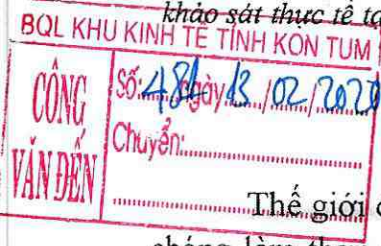 khảo sát thực tế tạ
BQL KHU KINH TẾ TỈNH KON TUM
CÔNG VĂN ĐẾN
Số: 481 ngày 13/02/2020
Chuyển:
Thế giới